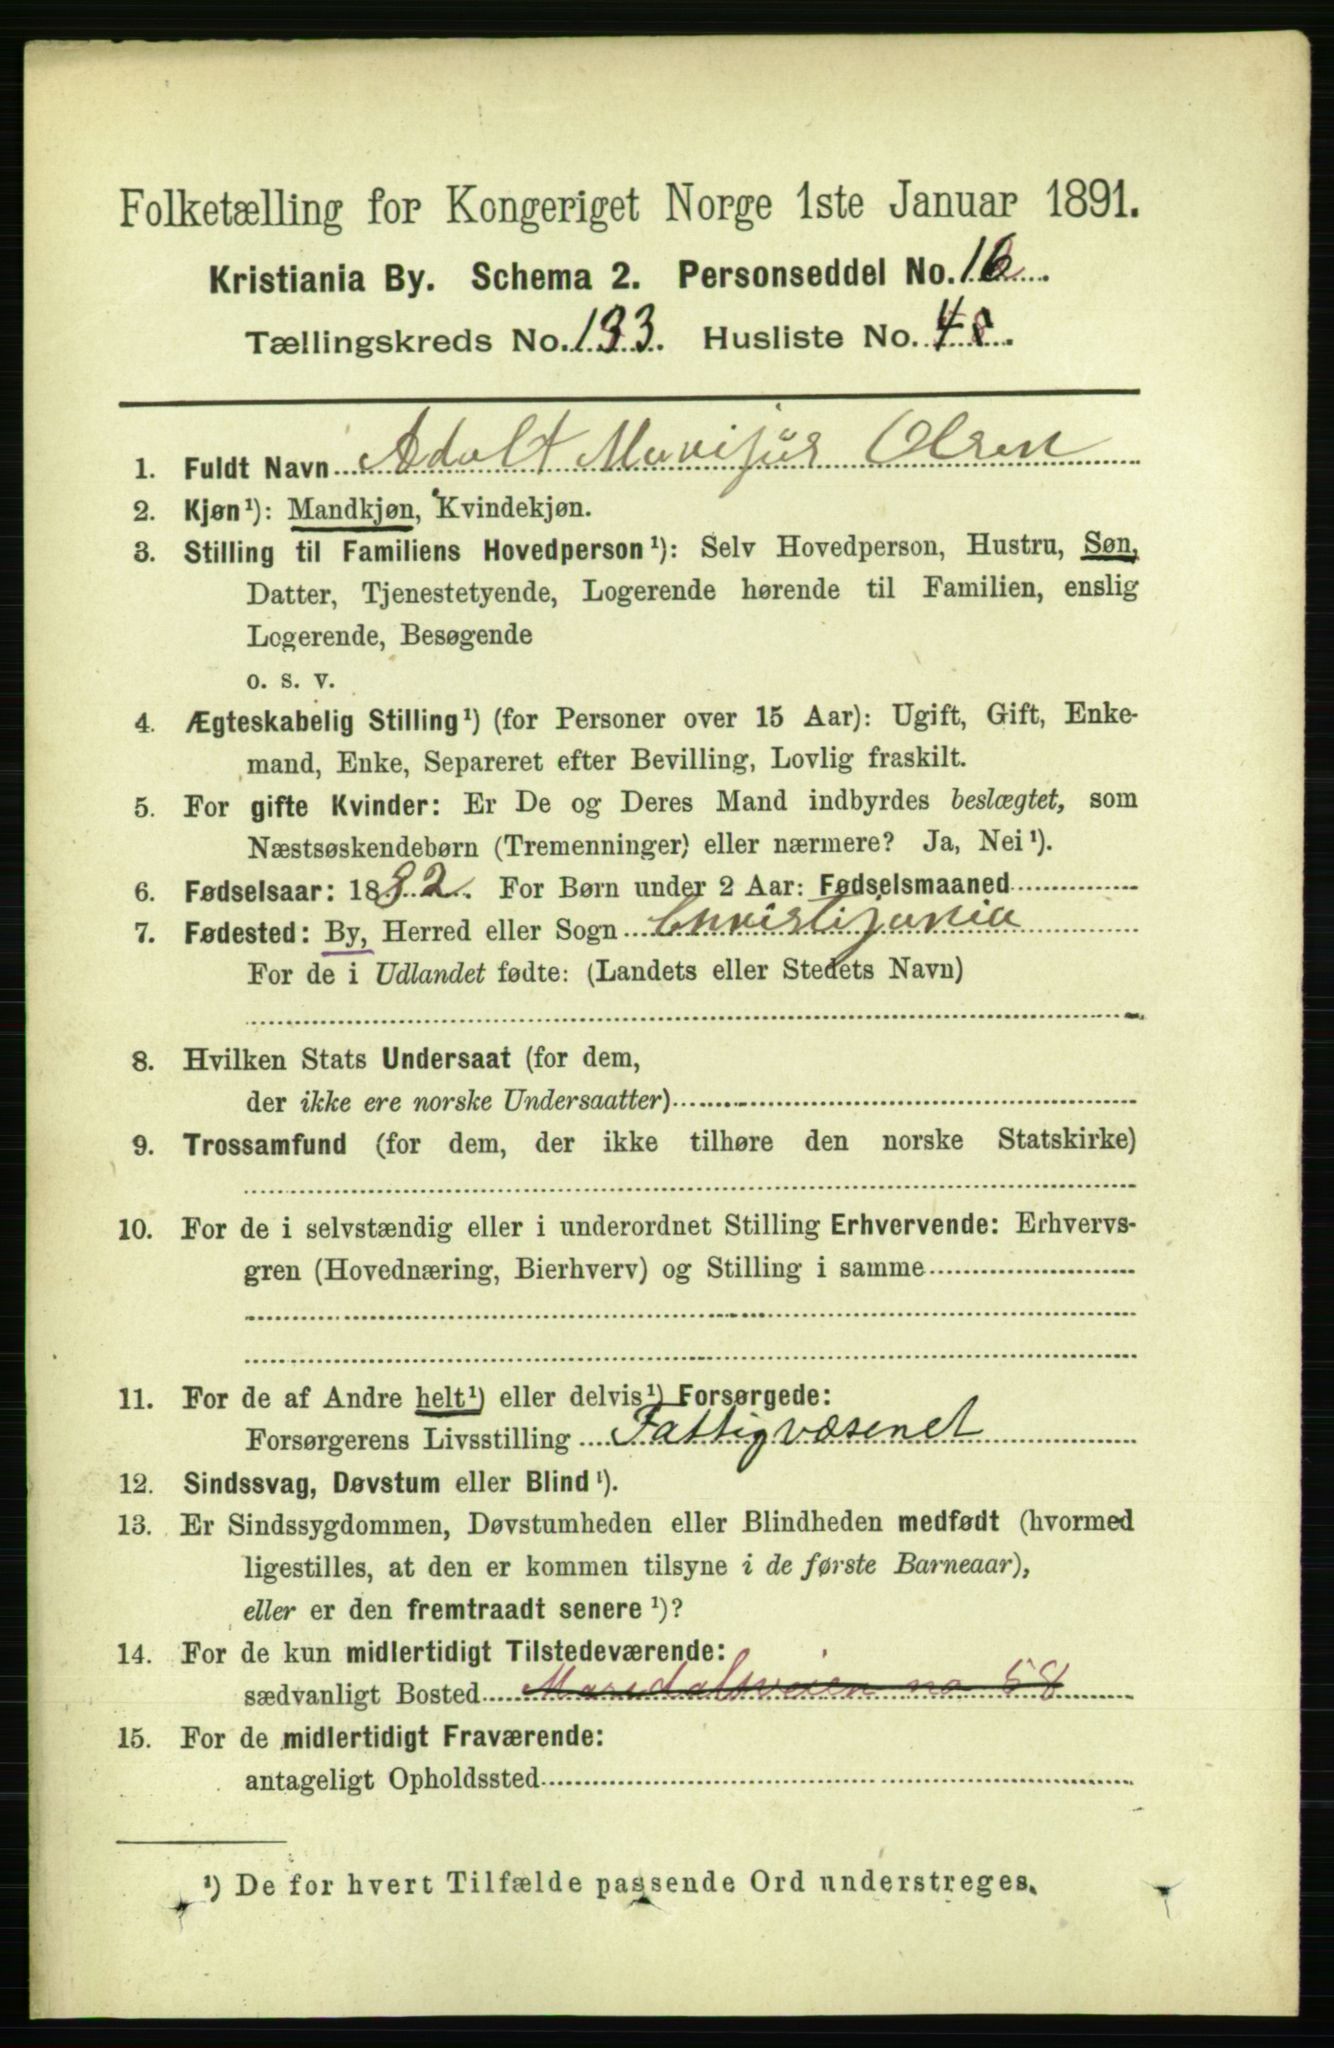 Folketælling for Kongeriget Norge 1ste Januar 1891.
Kristiania By. Schema 2. Personseddel No. 16.
Tællingskreds No. 133. Husliste No. 48.
1. Fuldt Navn Adolf Olsen
2. Kjøn¹): Mandkjøn, Kvindekjøn.
3. Stilling til Familiens Hovedperson¹): Selv Hovedperson, Hustru, Søn,
Datter, Tjenestetyende, Logerende hørende til Familien, enslig
Logerende, Besøgende
o. s. v.
4. Ægteskabelig Stilling¹) (for Personer over 15 Aar): Ugift, Gift, Enke-
mand, Enke, Separeret efter Bevilling, Lovlig fraskilt.
5. For gifte Kvinder: Er De og Deres Mand indbyrdes beslægtet, som
Næstsøskendebørn (Tremenninger) eller nærmere? Ja, Nei¹).
6. Fødselsaar: 1882. For Børn under 2 Aar: Fødselsmaaned
7. Fødested: By, Herred eller Sogn Christijania
For de i Udlandet fødte: (Landets eller Stedets Navn)
8. Hvilken Stats Undersaat (for dem,
der ikke ere norske Undersaatter)
9. Trossamfund (for dem, der ikke tilhøre den norske Statskirke)
10. For de i selvstændig eller i underordnet Stilling Erhvervende: Erhvervs-
gren (Hovednæring, Bierhverv) og Stilling i samme
11. For de af Andre helt¹) eller delvis¹) Forsørgede:
Forsørgerens Livsstilling Fattigvæsenet
12. Sindssvag, Døvstum eller Blind¹).
13. Er Sindssygdommen, Døvstumheden eller Blindheden medfødt (hvormed
ligestilles, at den er kommen tilsyne i de første Barneaar),
eller er den fremtraadt senere¹)?
14. For de kun midlertidigt Tilstedeværende:
sædvanligt Bosted Maridalsveien no 58
15. For de midlertidigt Fraværende:
antageligt Opholdssted
¹) De for hvert Tilfælde passende Ord understreges.